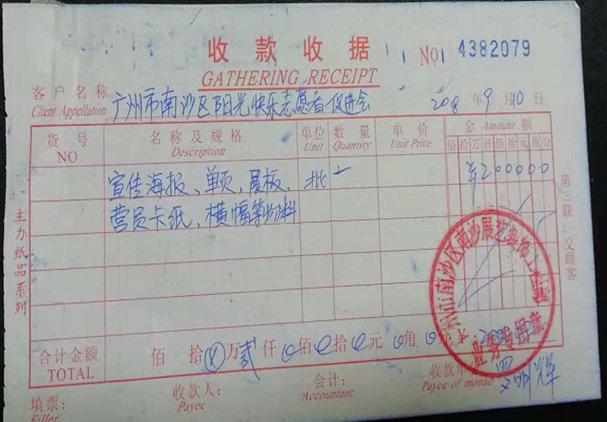 收款收据 NO 4382079
GATHERING RECEIPT
客户名称 广州市南沙区阳光快乐志愿者促进会 2018年9月10日
Client Appellation
货号 名称及规格 单位 数量 单价 金 Amount 额
NO Description Unit Quantity Unit Price 佰拾万仟佰拾元角分
宣传海报、单页、展板、 批 一 ¥200000
营员卡纸、横幅等物料
主力纸品系列
第三联:交顾客
合计金额 佰 拾 万 贰 仟 0 佰 0 拾 0 元 0 角
TOTAL
收款人: 会计: 收款单
填票: Payee Accountant Payee of monad
Filler
广州市南沙区南沙展艺装饰工
业务专用章